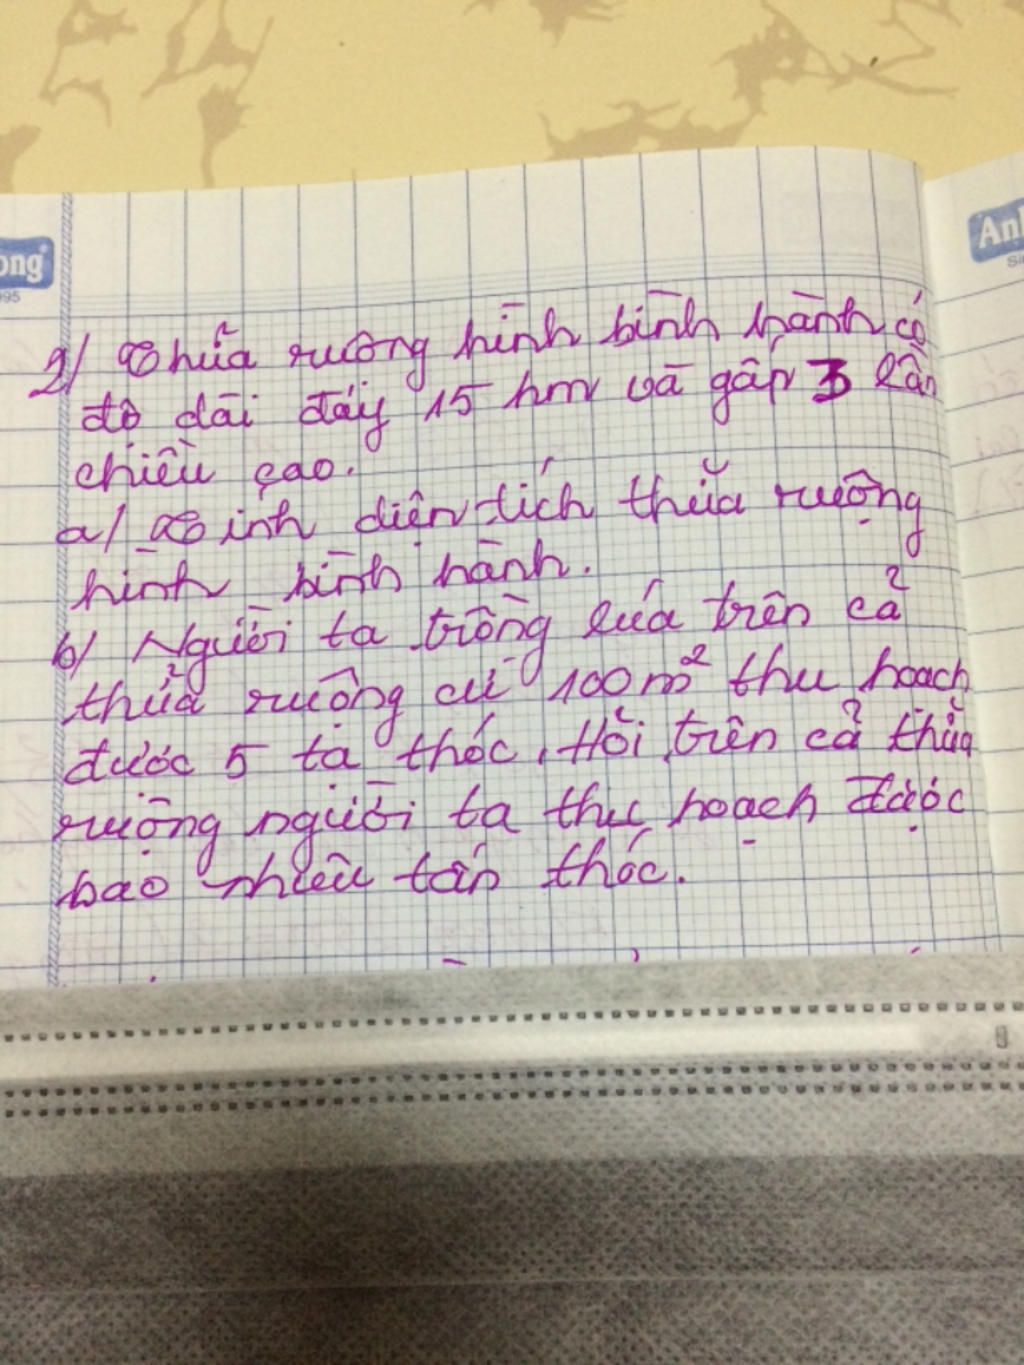 ong
995
Anh
Si
2/ Thửa ruộng hình bình hành có
độ dài đáy 15 hm và gấp 3 lần
chiều cao.
a/ Tính diện tích thửa ruộng
hình bình hành.
b/ Người ta trồng lúa trên cả
thửa ruộng cứ 100 m² thu hoạch
được 5 tạ thóc. Hỏi trên cả thửa
ruộng người ta thu hoạch được
bao nhiêu tấn thóc.